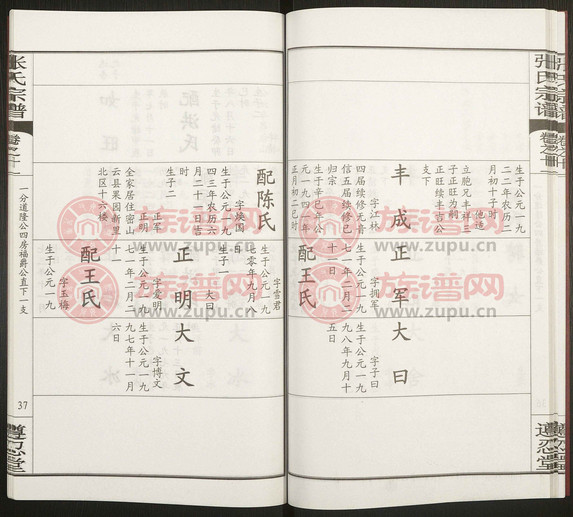 张氏宗谱
卷之十
遵忍堂
生于公元一九
二二年农历二
月初十子时
他适
立胞兄丰祥三
子正旺为嗣
正旺续丰吉公
支下
丰成
字江林
四届续修无音
信五届续修已
归宗
生于辛巳年公
元一九四一年
正月初二巳时
正军
字拥军
生于公元一九
七一年二月二
十一日
配王氏
大曰
字子曰
生于公元一九
九八年九月十
五日
字雪君
生于公元一九
七零年九月八
日
生子一
大曰
配陈氏
字焕国
生于公元一九
四三年农历六
月二十一日吉
时
生子二
正军
正明
全家居住密山
云县果园新里
北区十六楼
正明
字爱明
生于公元一九
七一年二月二
十一
配王氏
字玉梅
生于公元一九
大文
字博文
生于公元一九
九七年十一月
六日
一分道隆公四房福爵公直下一支
37
张氏宗谱
遵忍堂
族谱网
www.zupu.cn
族谱网
www.zupu.cn
族谱网
www.zupu.cn
族谱网
www.zupu.cn